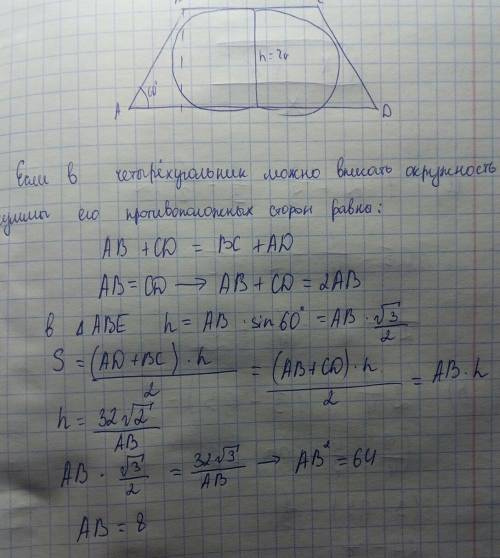 h=2r
A 60° D
Если в четырёхугольник можно вписать окружность
суммы его противоположных сторон равны:
AB + CD = BC + AD
AB = CD → AB + CD = 2AB
в Δ ABE h = AB · sin 60° = AB · √3/2
S = (AD + BC) · h / 2 = (AB + CD) · h / 2 = AB · h
h = 32√2 / AB
AB · √3/2 = 32√3 / AB → AB² = 64
AB = 8